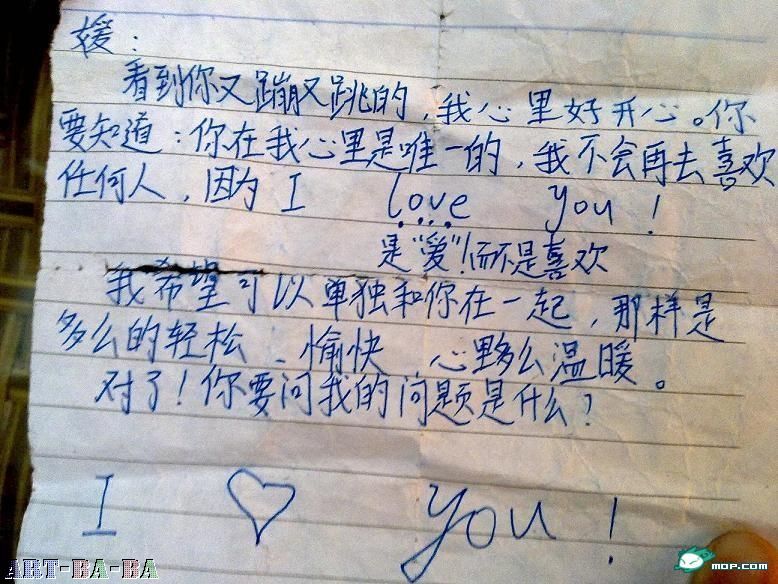 媛：
看到你又蹦又跳的，我心里好开心。你
要知道：你在我心里是唯一的，我不会再去喜欢
任何人，因为 I love you！
是“爱”！而不是喜欢
我希望可以单独和你在一起，那样是
多么的轻松、愉快，心里多么温暖。
对了！你要问我的问题是什么？
I ♡ you！
ART-BA-BA
MOP.COM